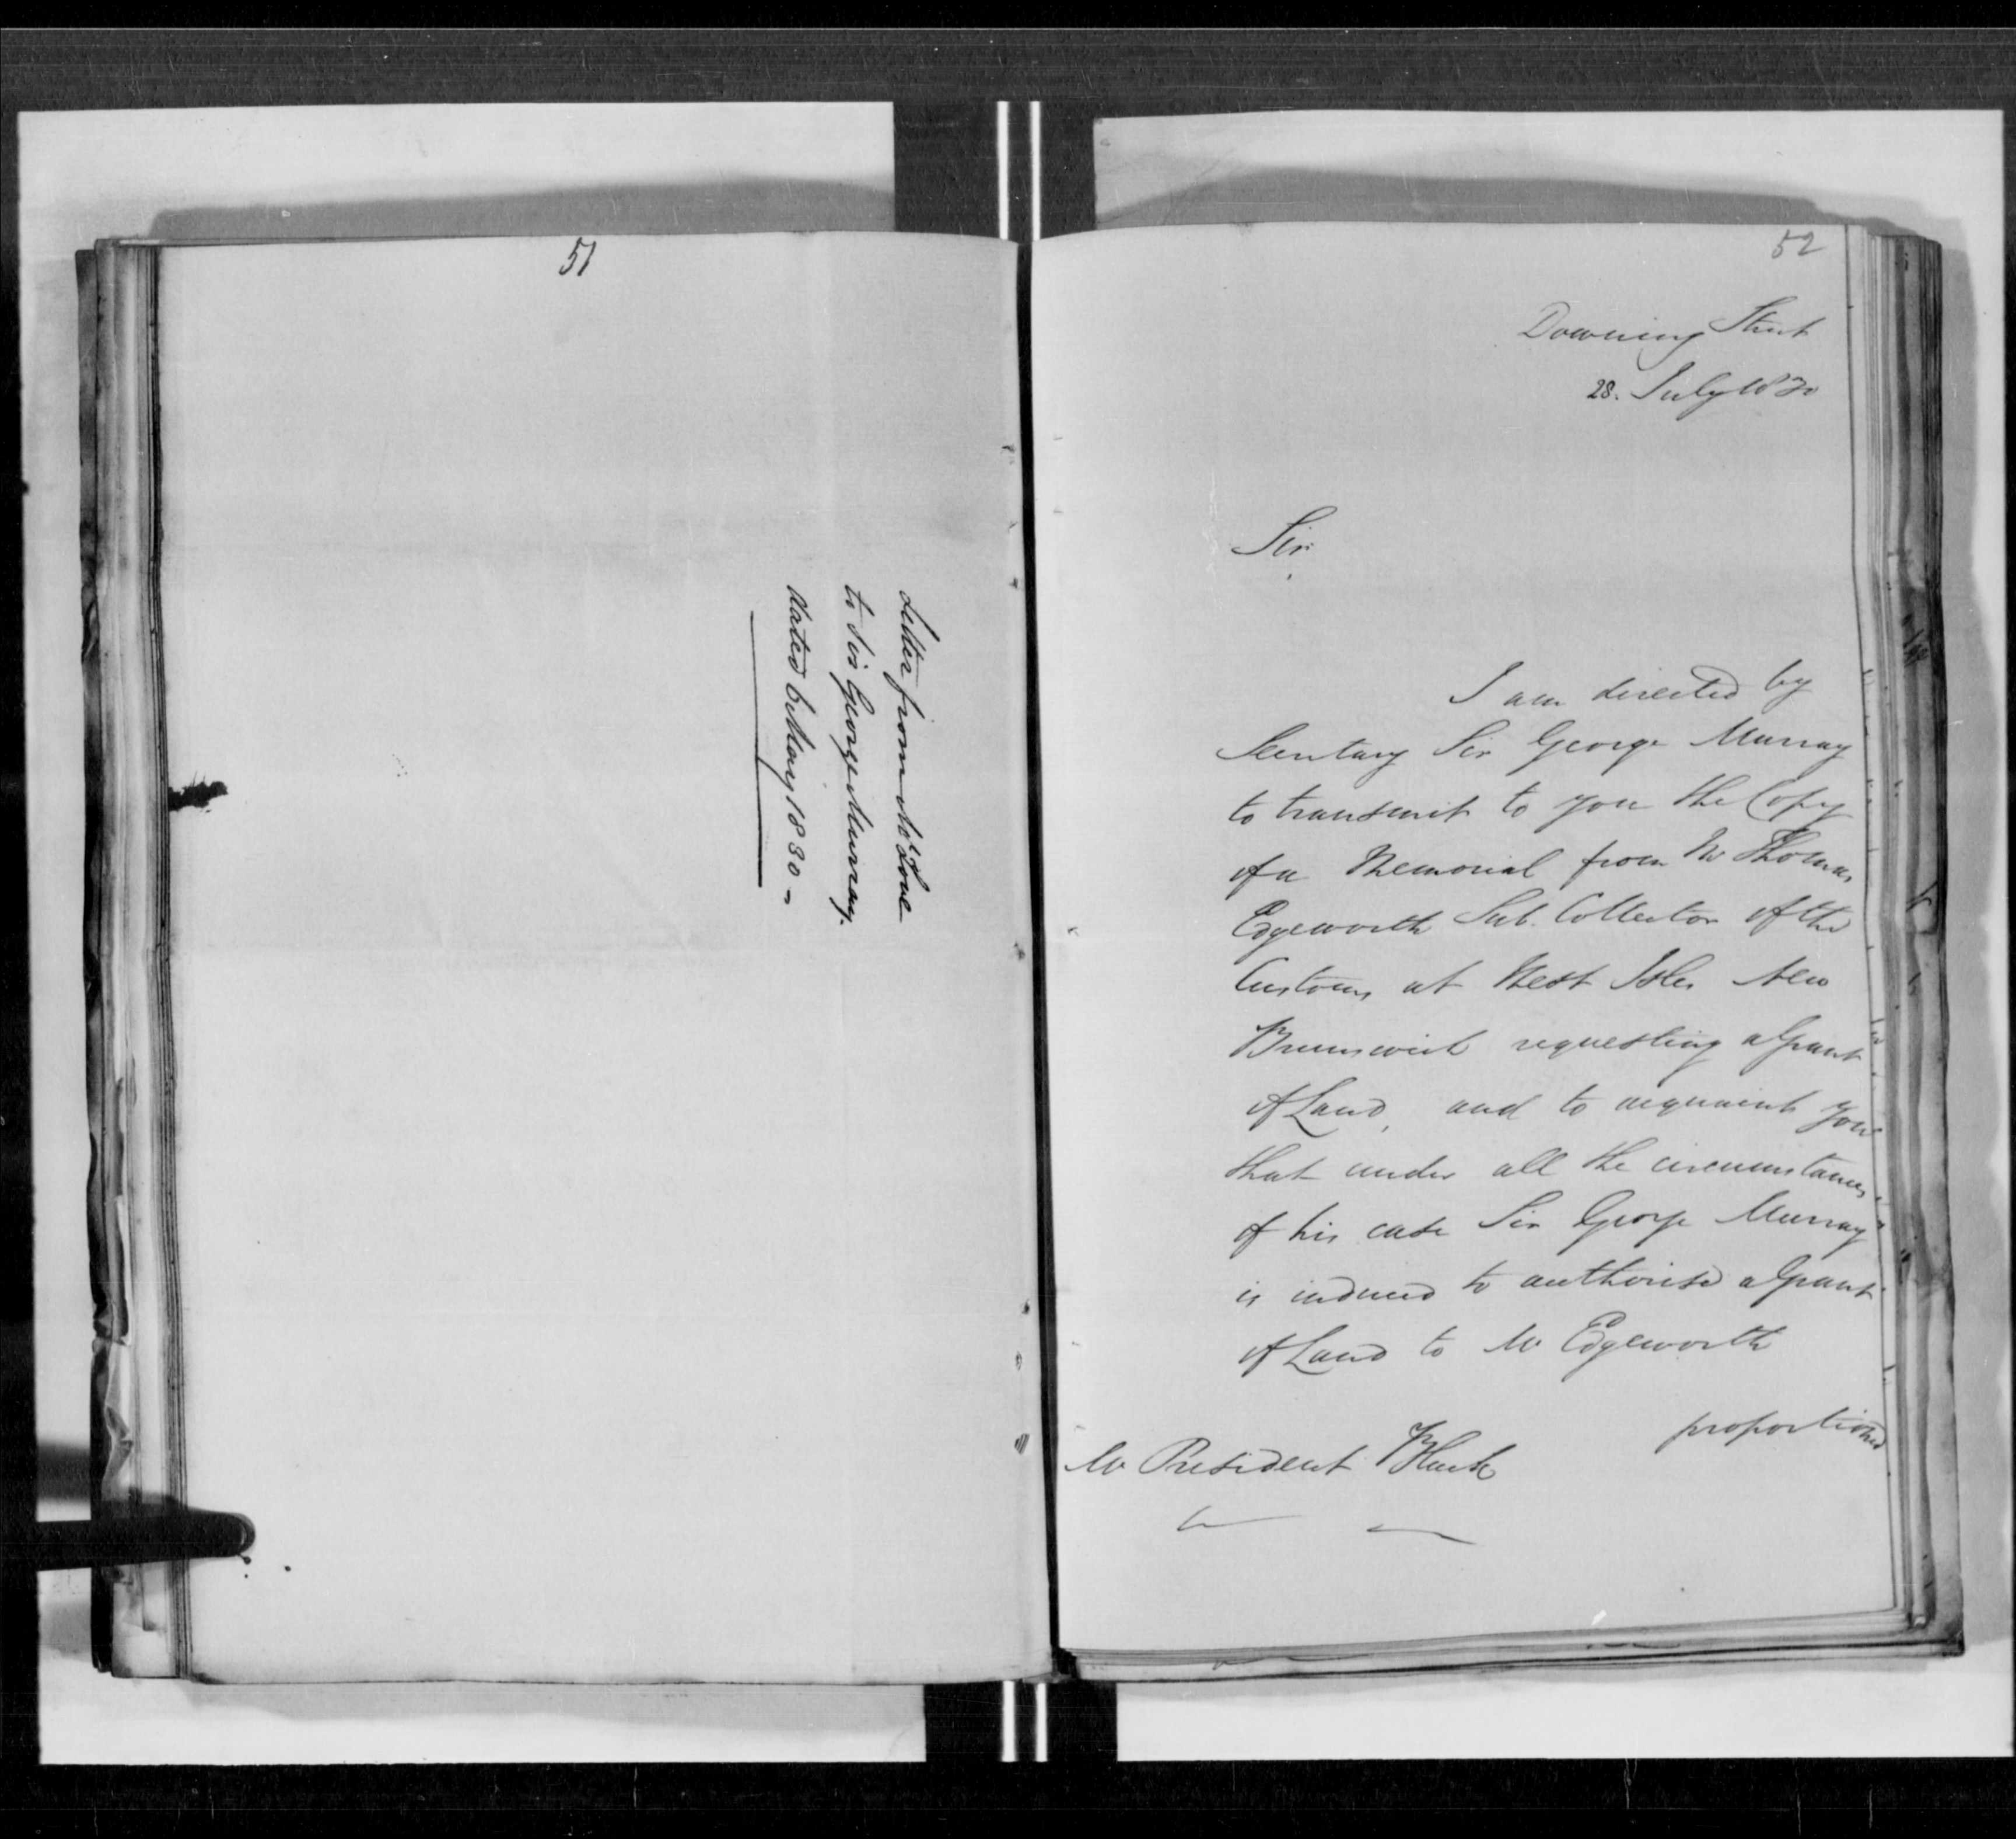 51
Letter from Mr Love
to Sir George Murray.
dated 6 May 1830 -
52
Downing Street
28. July 1830
Sir
I am directed by
Secretary Sir George Murray
to transmit to you the Copy
of a Memorial from Mr Thomas
Edgeworth Sub. Collector of the
Customs at West Isles New
Brunswick requesting a Grant
of Land, and to acquaint you
that under all the circumstances
of his case Sir George Murray
is induced to authorise a Grant
of Land to Mr Edgeworth
proportioned
Mr President Black